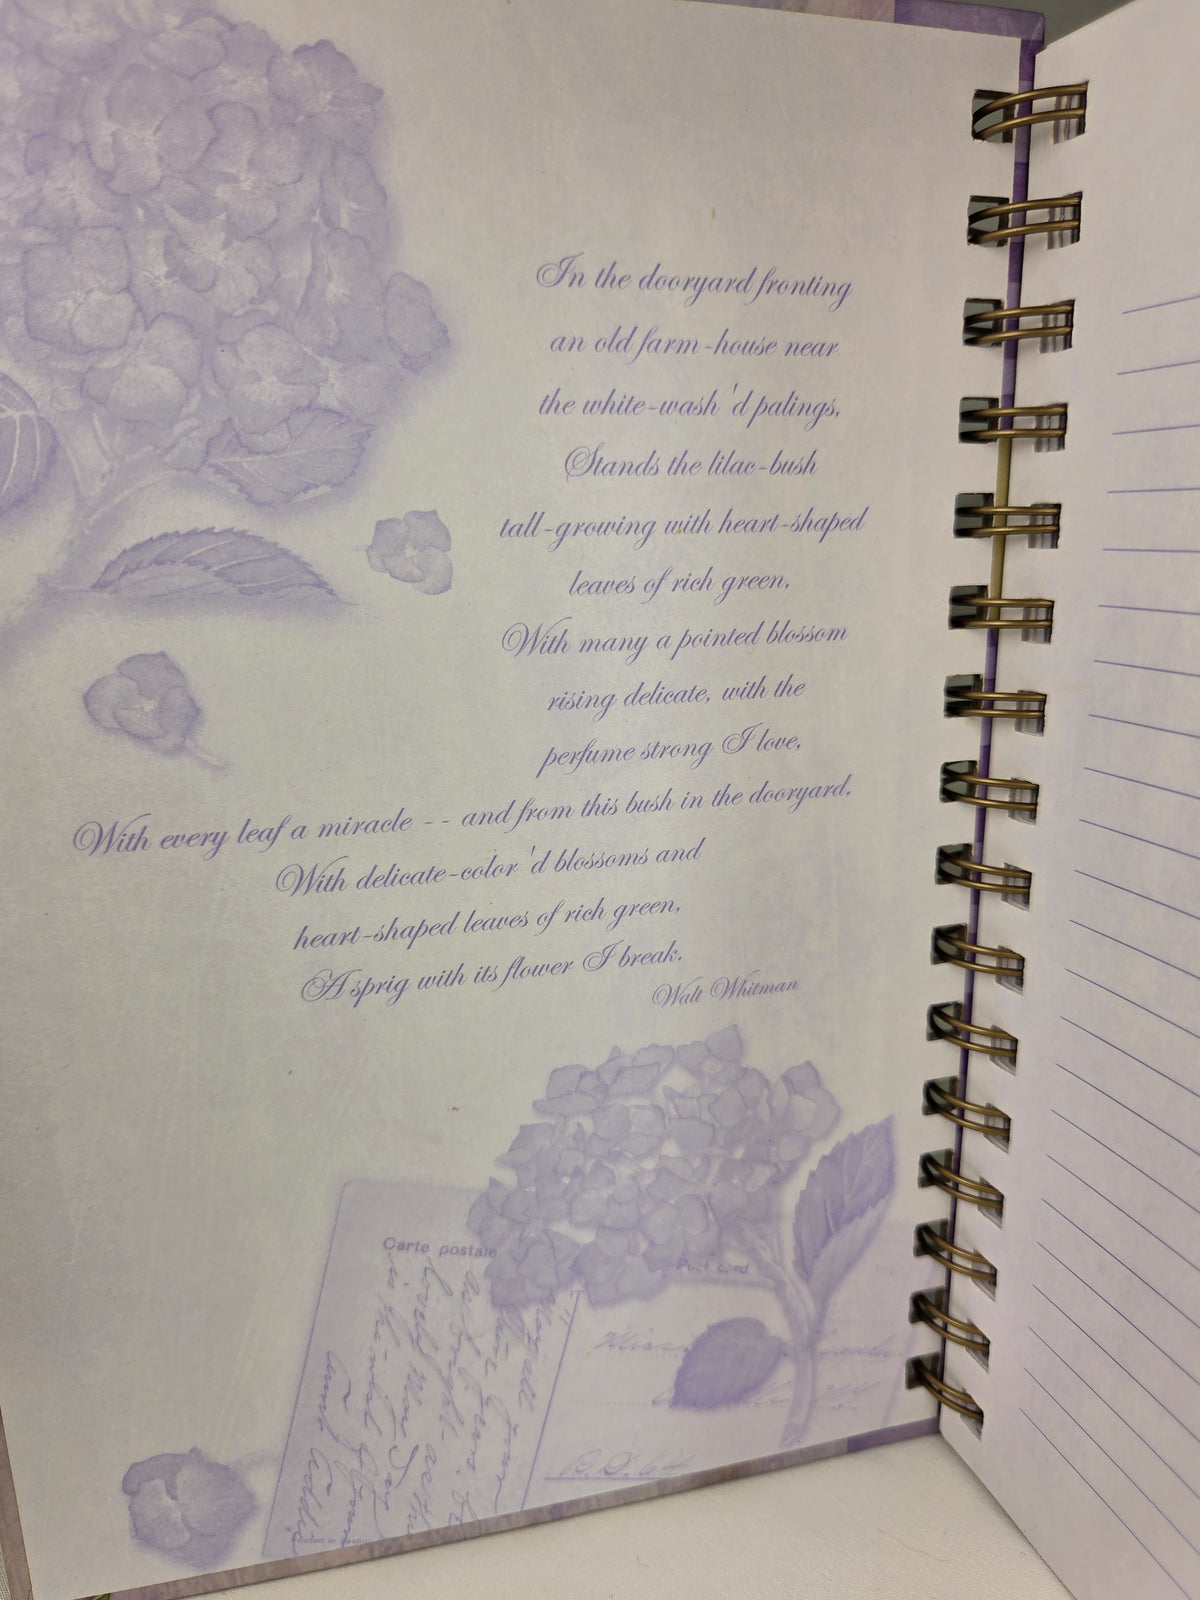 In the dooryard fronting
an old farm-house near
the white-wash'd palings,
Stands the lilac-bush
tall-growing with heart-shaped
leaves of rich green,
With many a pointed blossom
rising delicate, with the
perfume strong I love,
With every leaf a miracle -- and from this bush in the dooryard,
With delicate-color'd blossoms and
heart-shaped leaves of rich green,
A sprig with its flower I break.
Walt Whitman
Carte postale
Post card
Miss